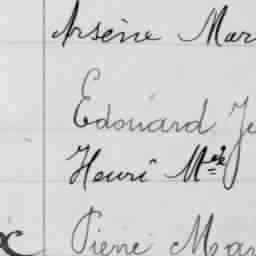 Arsène Mar
Edouard Je
Henri M
Pierre Mar